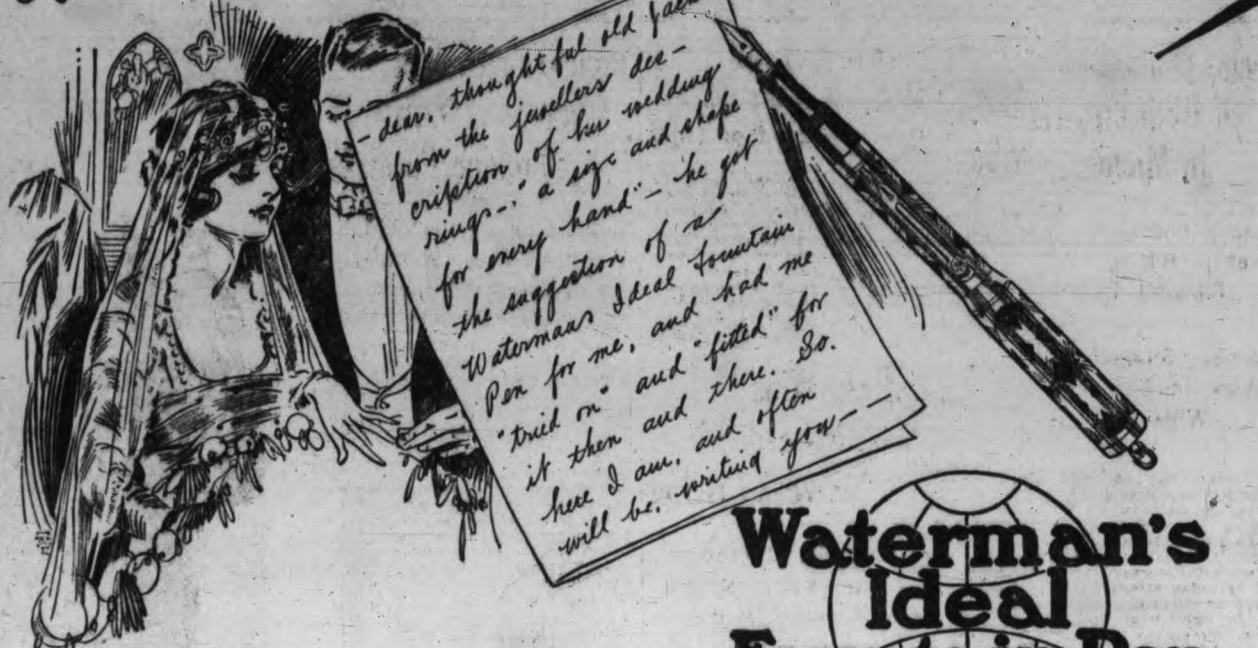 - dear, thoughtful old Jack
from the jewellers des-
cription of her wedding
rings-, "a size and shape
for every hand" - he got
the suggestion of a
Watermans Ideal Fountain
Pen for me, and had me
"tried on" and "fitted" for
it then and there. So.
here I am, and often
will be, writing you - -
Waterman's
Ideal